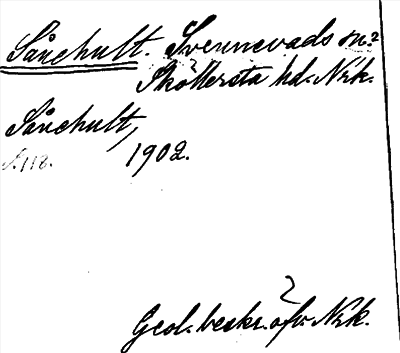 Sånehult. Svennevads sn.
Sköllersta hd. Nrk.
Sånehult,
1902.
Geol. beskr. öfv. Nrk.